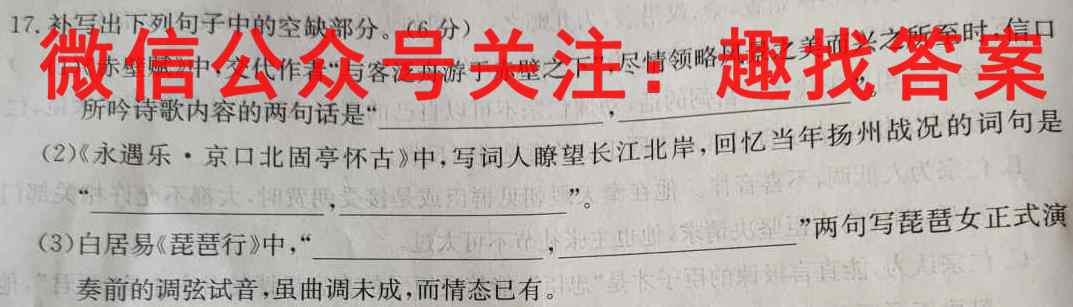 17.补写出下列句子中的空缺部分。(6分)
微信公众号关注：趣找答案
《赤壁赋》中,交代作者“与客泛舟游于赤壁之下”,尽情领略之美而兴之所至时,信口
所吟诗歌内容的两句话是“ , ”。
(2)《永遇乐·京口北固亭怀古》中,写词人瞭望长江北岸,回忆当年扬州战况的词句是
“ , ”。
(3)白居易《琵琶行》中,“ , ”两句写琵琶女正式演
奏前的调弦试音,虽曲调未成,而情态已有。